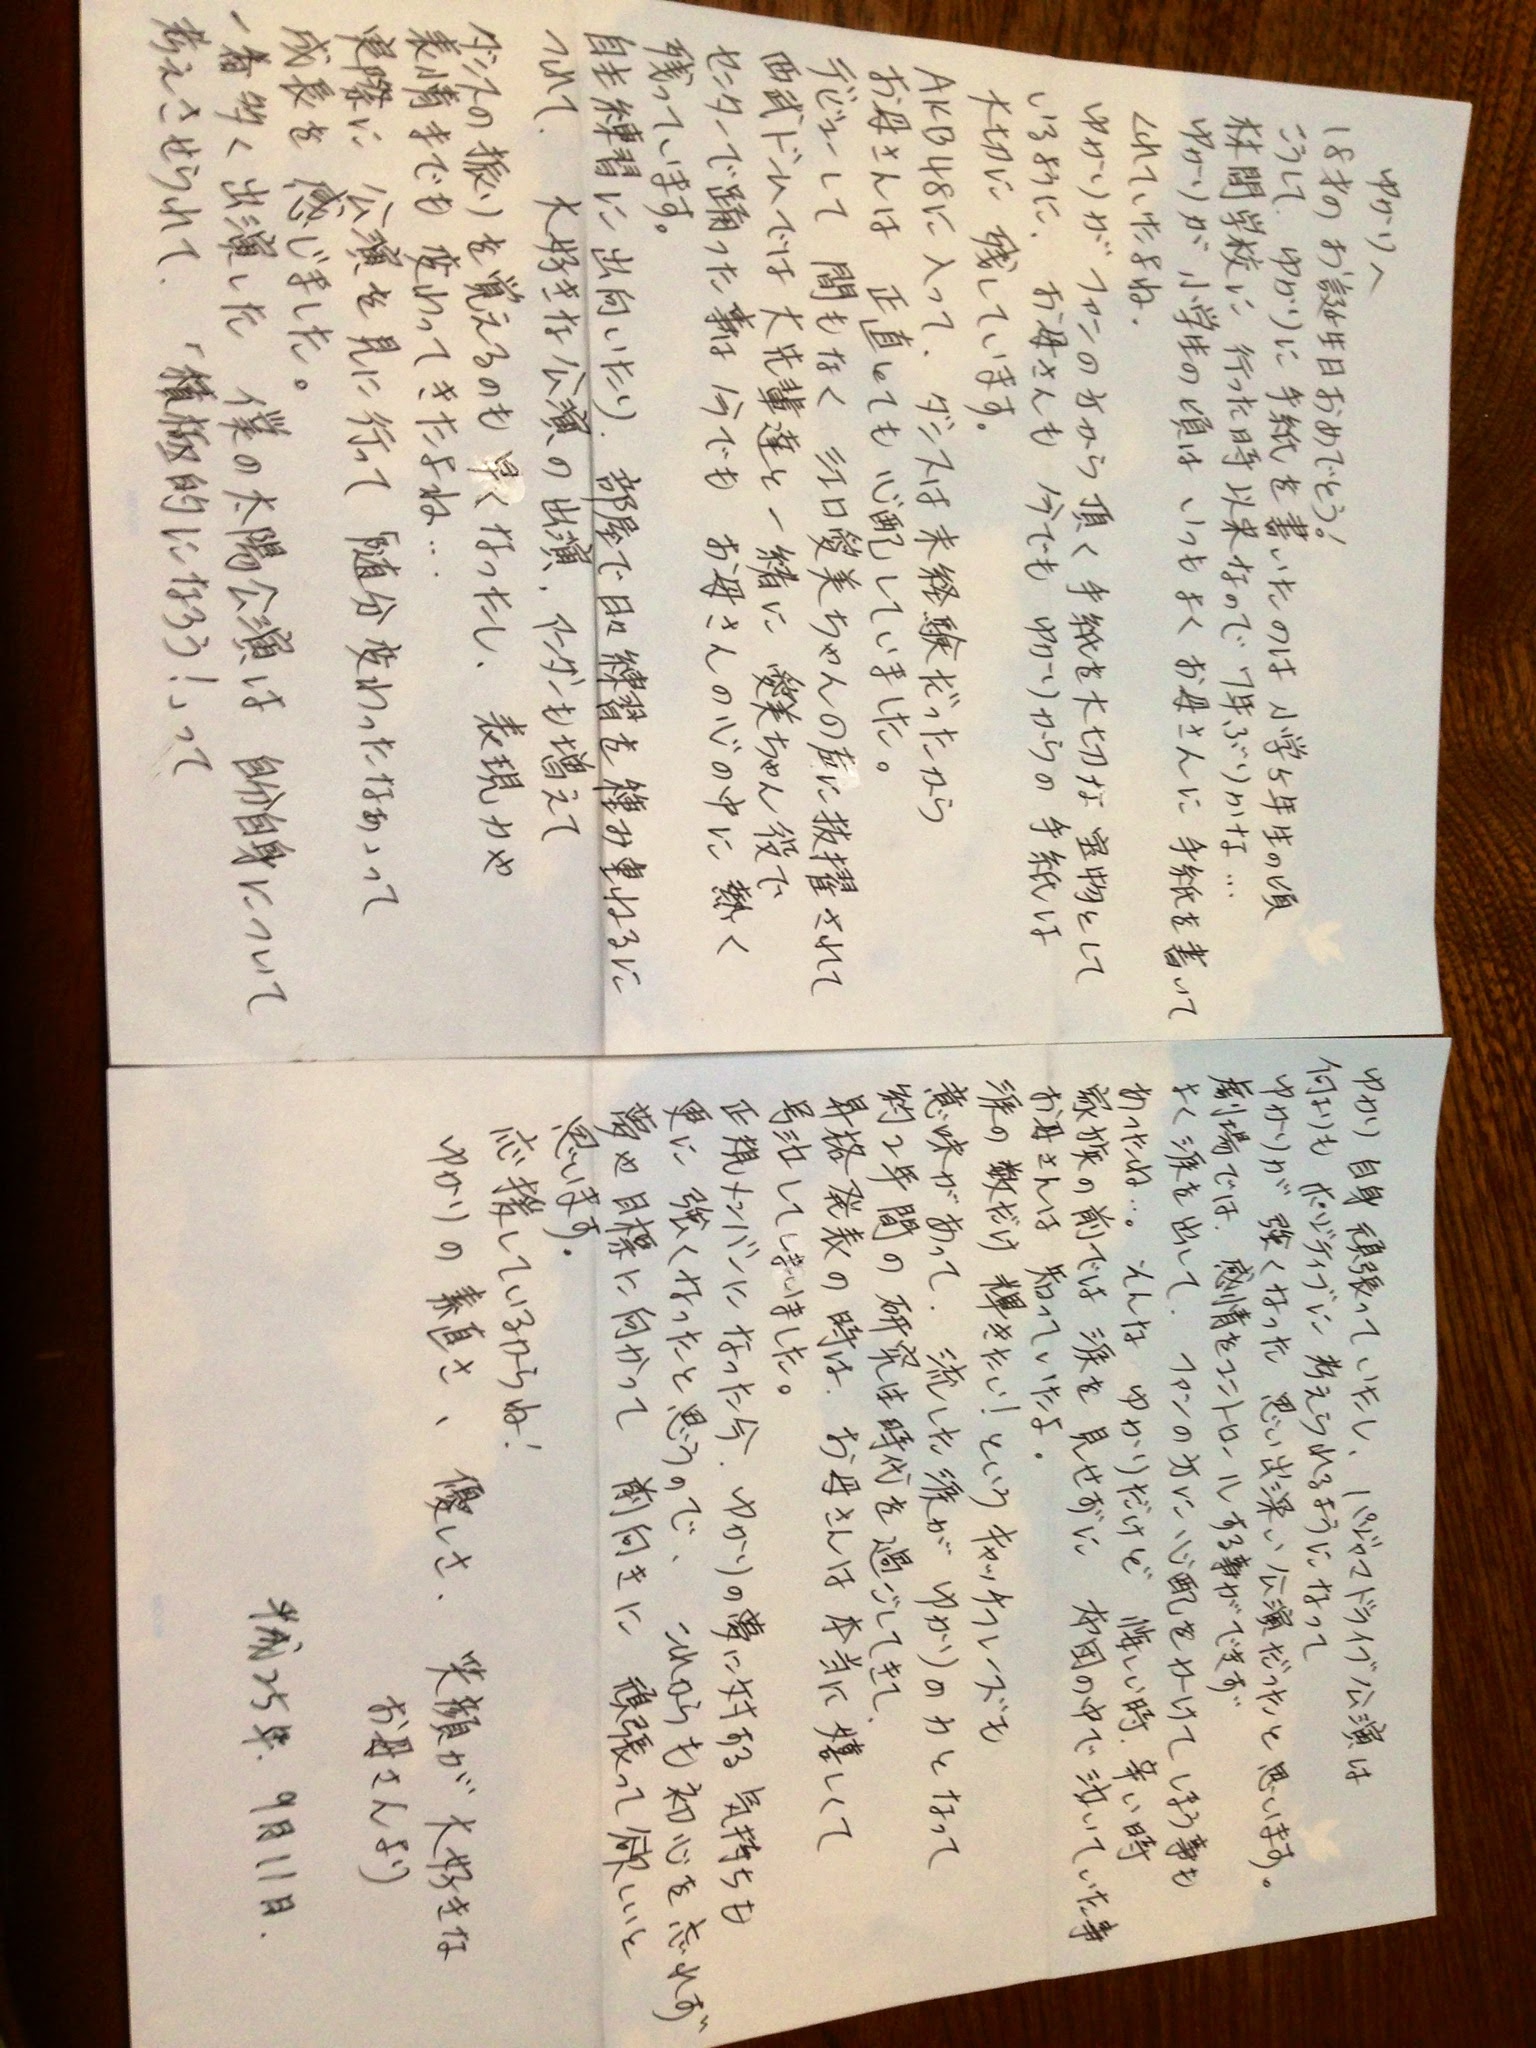 ゆかりへ
18才のお誕生日おめでとう!
こうして、ゆかりに手紙を書いたのは小学5年生の頃
林間学校に行った時以来なので7年ぶりかな…
ゆかりが小学生の頃はいつもよくお母さんに手紙を書いて
くれていたよね.
ゆかりがファンの方から頂く手紙を大切な宝物として
いるように、お母さんも今でもゆかりからの手紙は
大切に残しています。
AKB48に入って、ダンスは未経験だったから
お母さんは正直とても心配していました。
デビューして間もなく江口愛実ちゃんの座に抜擢されて
西武ドームでは大先輩達と一緒に愛実ちゃん役で
センターで踊った事は今でもお母さんの心の中に熱く
残っています。
自主練習に出向いたり、部屋で日々練習を積み重ねるに
つれて、大好きな公演の出演、アンダーも増えて
ダンスの振りを覚えるのも早くなったし、表現力や
表情までも変わってきたよね…
実際に公演を見に行って「随分変わったなぁ」って
成長を感じました。
一番多く出演した僕の太陽公演は自分自身について
考えさせられて、「積極的になろう!」って
ゆかり自身頑張っていたし、パジャマドライブ公演は
何よりもポジティブに考えられるようになって
ゆかりが強くなった思い出深い公演だったと思います。
劇場では、感情をコントロールする事ができず
よく涙を出して、ファンの方に心配をかけてしまう事も
あったね…。そんなゆかりだけど悔しい時、辛い時
家族の前では涙を見せずに布団の中で泣いていた事
お母さんは知っていたよ。
涙の数だけ輝きたい!というキャッチフレーズも
意味があって、流した涙がゆかりの力となって
約2年間の研究生時代を過ごしてきて、
昇格発表の時は、お母さんは本当に嬉しくて
号泣してしまいました。
正規メンバーになった今、ゆかりの夢に対する気持ちも
更に強くなったと思うので、これからも初心を忘れず
夢や目標に向かって前向きに頑張って欲しいと
思います。
応援しているからね!
ゆかりの素直さ、優しさ、笑顔が大好きな
お母さんより
平成25年.9月11日.